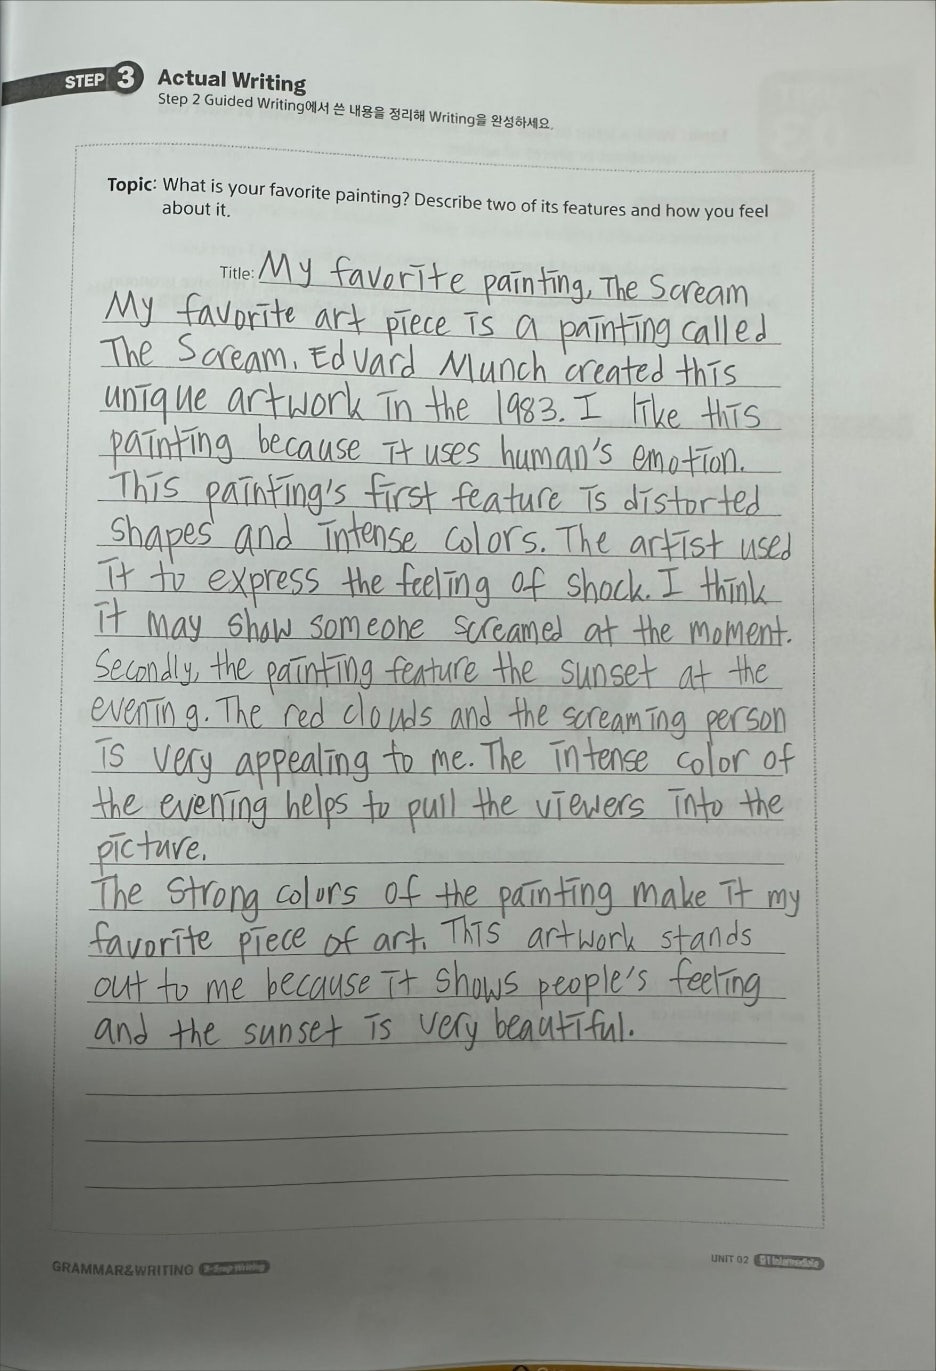 STEP 3 Actual Writing
Step 2 Guided Writing에서 쓴 내용을 정리해 Writing을 완성하세요.
Topic: What is your favorite painting? Describe two of its features and how you feel
about it.
Title: My favorite painting, The Scream
My favorite art piece is a painting called
The Scream. Edvard Munch created this
unique artwork in the 1983. I like this
painting because it uses human's emotion.
This painting's first feature is distorted
shapes and intense colors. The artist used
it to express the feeling of shock. I think
it may show someone screamed at the moment.
Secondly, the painting feature the sunset at the
evening. The red clouds and the screaming person
is very appealing to me. The intense color of
the evening helps to pull the viewers into the
picture.
The strong colors of the painting make it my
favorite piece of art. This artwork stands
out to me because it shows people's feeling
and the sunset is very beautiful.
GRAMMAR&WRITING
UNIT 02